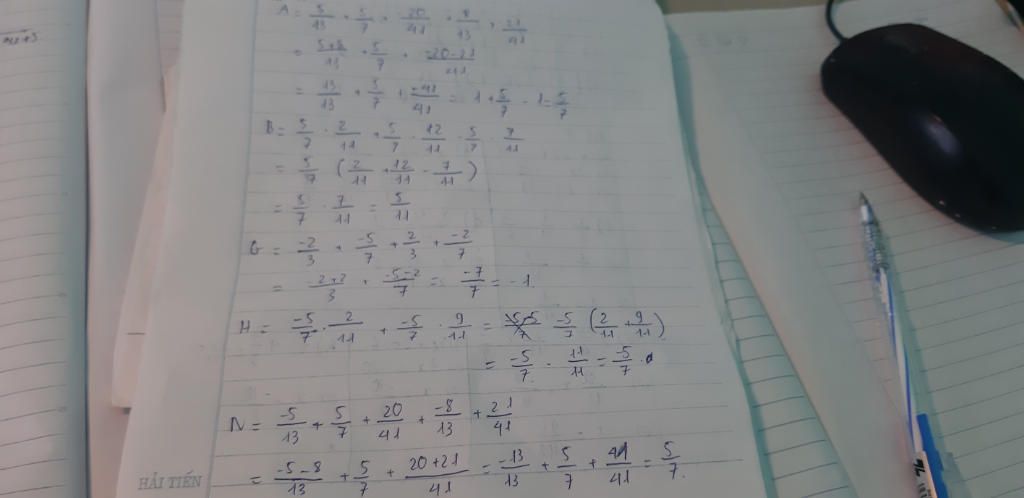 A = 5/13 + 5/7 + -20/41 + 8/13 + -21/41
= 5+8/13 + 5/7 + -20-21/41
= 13/13 + 5/7 + -41/41 = 1 + 5/7 - 1 = 5/7
B = 5/7 · 2/11 + 5/7 · 12/11 - 5/7 · 7/11
= 5/7 (2/11 + 12/11 - 7/11)
= 5/7 · 7/11 = 5/11
G = -2/3 + -5/7 + 2/3 + -2/7
= -2+2/3 + -5-2/7 = -7/7 = -1.
H = -5/7 · 2/11 + -5/7 · 9/11 = -5/7 (2/11 + 9/11)
= -5/7 · 11/11 = -5/7 .
N = -5/13 + 5/7 + 20/41 + -8/13 + 21/41
= -5-8/13 + 5/7 + 20+21/41 = -13/13 + 5/7 + 41/41 = 5/7.
HẢI TIẾN